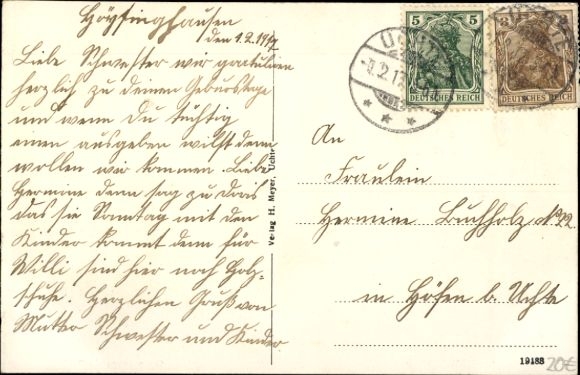 Höysinghausen
den 1.2.1917
Liebe Schwester wir gratulieren
herzlich zu deinen Geburtstage
und wenn Du tüchtig
einen ausgeben willst denn
wollen wir kommen. Liebe
Hermine denn sag zu Doris
das sie Sonntag mit den
Kinder kommt denn für
Willi sind hier noch Holz-
schuhe. Herzlichen Gruß von
Mutter Schwester und Kinder
Verlag H. Meyer, Uchte
5 5
DEUTSCHES REICH
3
DEUTSCHES REICH
UCHTE
An
Fräulein
Hermine Buchholz No 92.
in Höfen b. Uchte
19188
20€